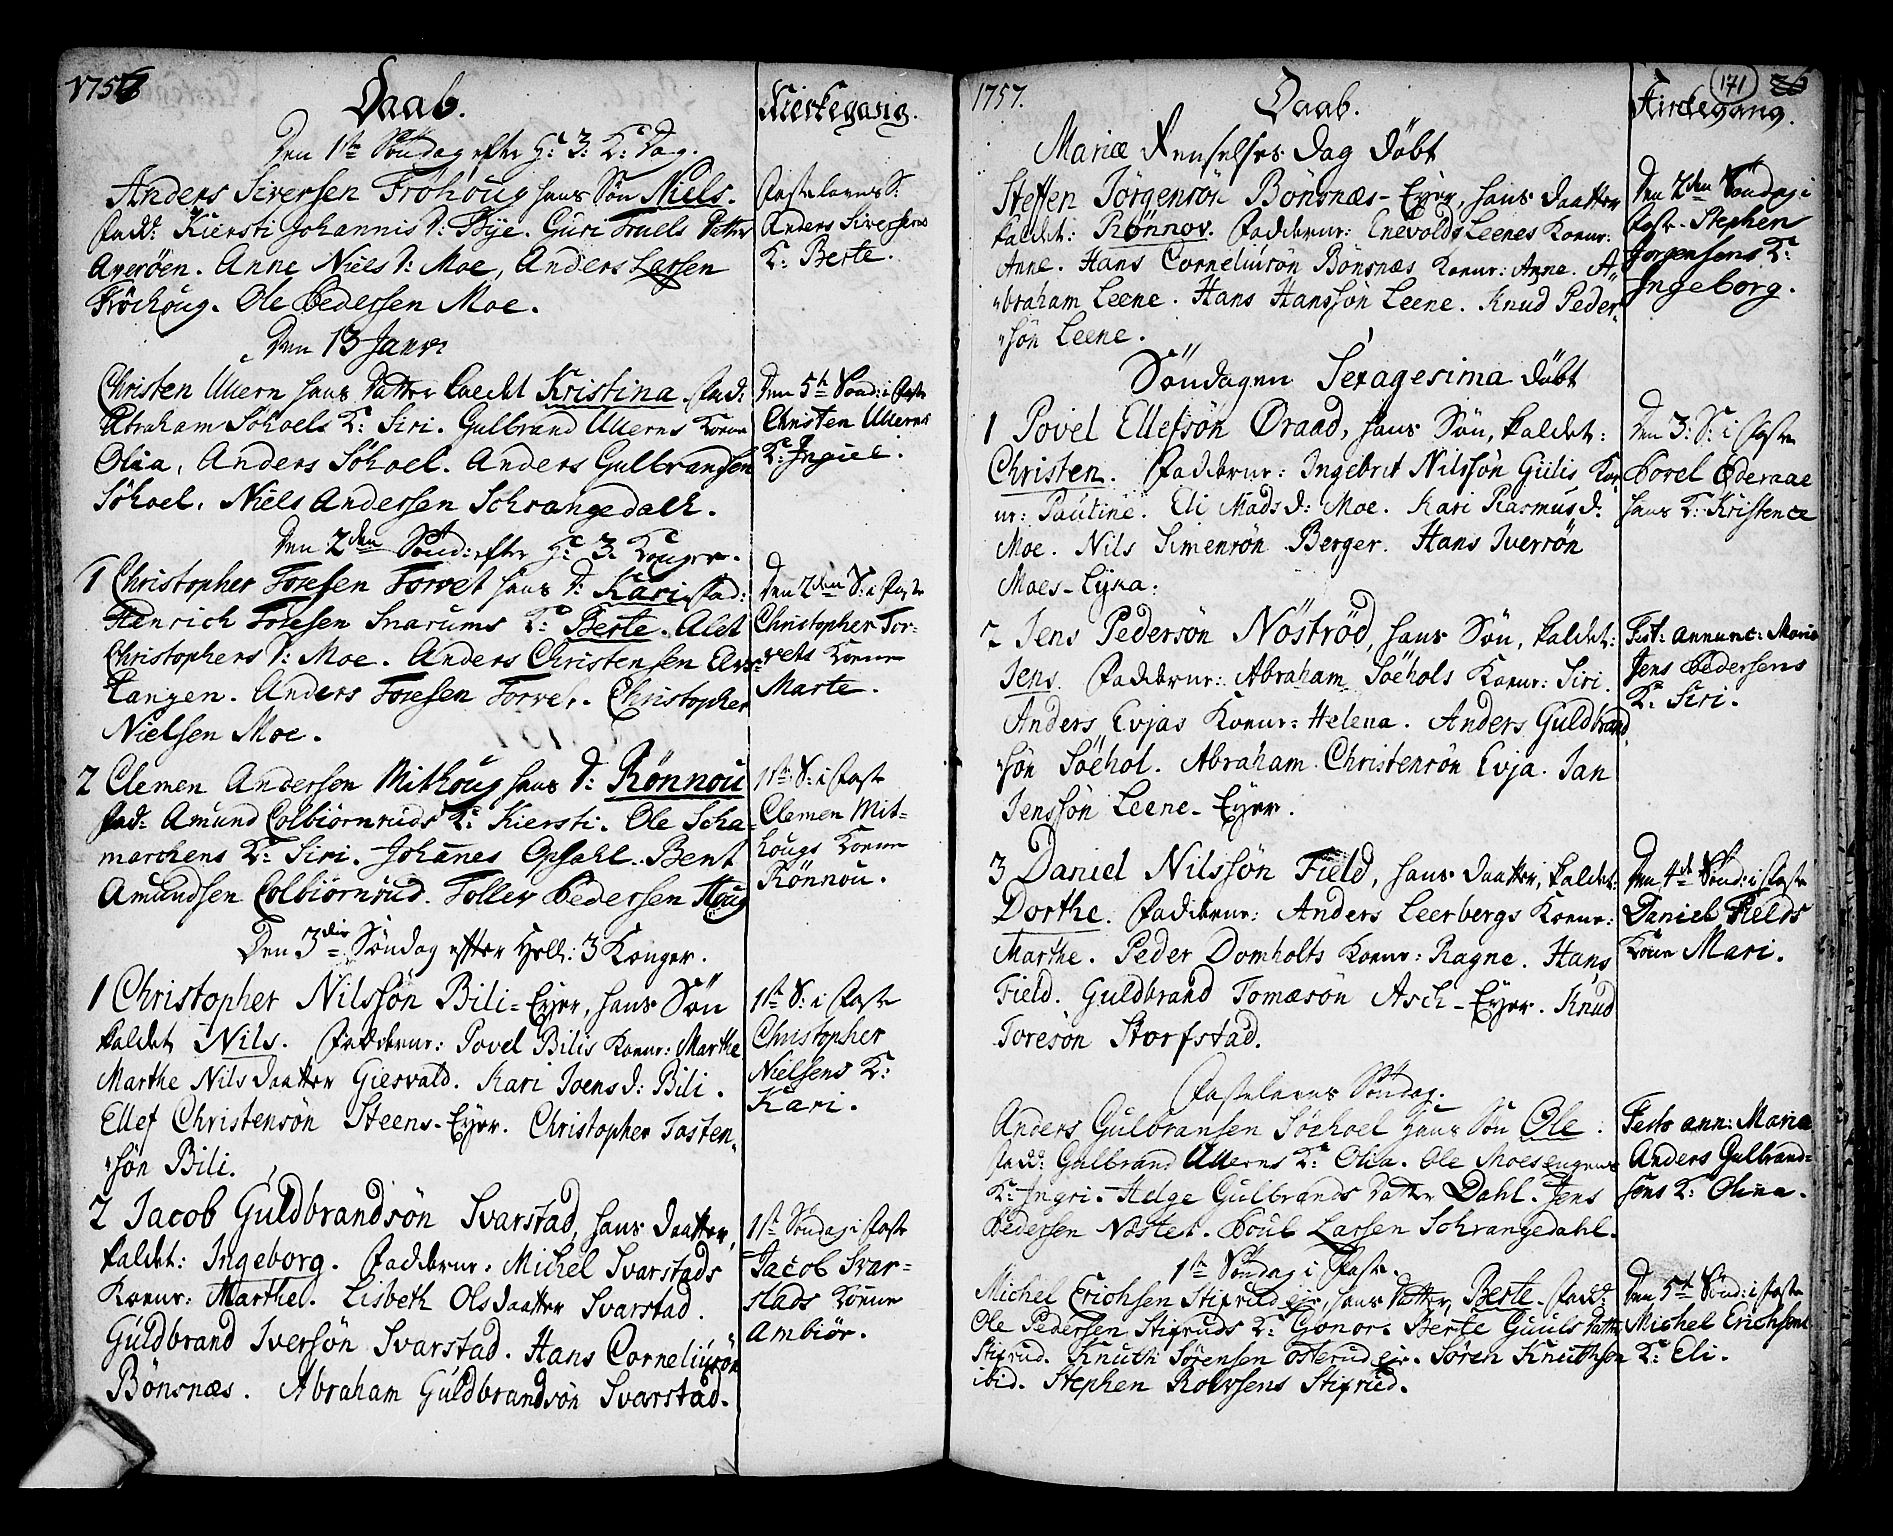 1757
Daab.
Kierkegang.
Den 1ste Söndag efter H: 3: K: Dag.
Anders Siversen Fröhoug hans Sön Niels.
Fadd: Kiersti Johannis D: Bye. Guri Truels Datter
Ayeröen. Anne Niels D: Moe, Anders Larsen
Fröchoug. Ole Pedersen Moe.
Fastelavns S:
Anders Siversens
K: Berte.
Den 13 Janr
Christen Ullern hans Datter kaldt Kristina. Fad:
Abraham Söhoels K: Siri. Gulbrand Ullerns Kone
Olia, Anders Söhoel. Anders Gulbrandsen
Söhoel. Niels Andersen Schrangedahl.
Den 5te Sönd: i Faste
Christen Ullerns
K:
Den 2den Sönd: efter H: 3: Konger.
1 Christopher Toresen Torvet hans D: Kari. Fad:
Henrich Toresen Snarums K: Berte. Alet
Christophers D: Moe. Anders Christensen
tangen. Anders Toresen Torvet. Christopher
Nielsen Moe.
Den 2den S: i Faste
Christopher Tor-
vets Kone
Marte.
2 Clemen Andersen Mithoug hans D: Rönnou
Fad: Amund Colbiörnruds K: Kiersti. Ole Scha-
marchens K: Siri. Johannes Opsahl. Bent
Amundsen Colbiörnrud. Tollev Pedersen Houg
1ste S: i Faste
Clemen Mit-
hougs Kone
Rönnou.
Den 3die Söndag efter Hell: 3 Konger.
1 Christopher Nilssön Bili-Eyer, hans Sön
kaldet Nils. Fadderne: Povel Bilis Kone: Marthe
Marthe Nils Daatter Giesvald. Kari Joens D: Bili.
Ellef Christensön Steens-Eyer. Christopher Tosten-
sön Bili.
1ste S: i Faste
Christopher
Nielsens K:
Kari.
2 Jacob Guldbrandsön Svarstad, hans Daatter,
kaldet: Ingeborg. Fadderne: Michel Svarstads
Kone: Marthe. Lisbeth Olsdaatter Svarstad.
Guldbrand Iversön Svarstad. Hans Corneliusön
Bönsnæs. Abraham Guldbrandsön Svarstad.
1ste Söndag i Faste
Jacob Svar-
stads Kone
Ambiör.
1757.
Daab.
171
Kirkegang.
Mariæ Renselses Dag döbt
Steffen Jörgensön Bönsnæs-Eyer, hans Daatter
kaldet: Rönnov. Fadderne: Enevold Leenes Kone:
Anne. Hans Corneliusön Bönsnæs Kone: Anne. A-
braham Leene. Hans Hanssön Leene. Knud Peder-
sön Leene.
Den 2den Söndag i
Faste. Stephen
Jorgensens K:
Ingeborg.
Söndagen Sexagesima döbt
1 Povel Ellefsön Øraad, hans Sön, kaldet:
Christen. Fadderne: Ingebret Nilssön Gulis Ko-
ne: Pauline. Eli Mads D: Moe. Kari Rasmus D:
Moe. Nils Simensön Berger. Hans Iversön
Moes-Eyer:
Den 3: S: i Faste
Povel Øderaae
hans K: Kristence
2 Jens Pedersön Nöströd, hans Sön, kaldet:
Jens. Fadderne: Abraham Söehols Kone: Siri.
Anders Evjas Kone: Helena. Anders Guldbrand-
sön Söehol. Abraham Christensön Evja. Jan
Jenssön Leene-Eyer.
Fest: annunc: Mariæ
Jens Pedersens
K: Siri.
3 Daniel Nilssön Field, hans Daatter, kaldet:
Dorthe. Fadderne: Anders Leerbergs Kone:
Marthe. Peder Domholts Kone: Ragne. Hans
Field. Guldbrand Tomæsön Asch-Eyer. Knud
Toresön Storfstad.
Den 4de Sönd: i Faste
Daniel Fields
Kone Mari.
Fastelavns Söndag.
Anders Gulbransen Söehoel hans Sön Ole:
Fadd: Gulbrand Ullerns K: Olia. Ole Moesengens
K: Ingri. Helge Gulbrands Datter Dahl. Jens
Pedersen Nöstet. Poul Larsen Schrangedahl.
Festo ann: Mariæ
Anders Gulbrand-
sens K: Olina.
1ste Söndag i Faste.
Michel Erichsen Stifrud eie, hans Datter Berte. Fadd:
Ole Pedersen Stifruds K: Gonor. Berte Guuls Datter
Stifrud. Knuth Sörensen Osterud eie. Sören Knuthsen
ibid. Stephen Rolvsens Stifrud.
Den 5te Sönd: i Faste
Michel Erichsens
K: Eli.